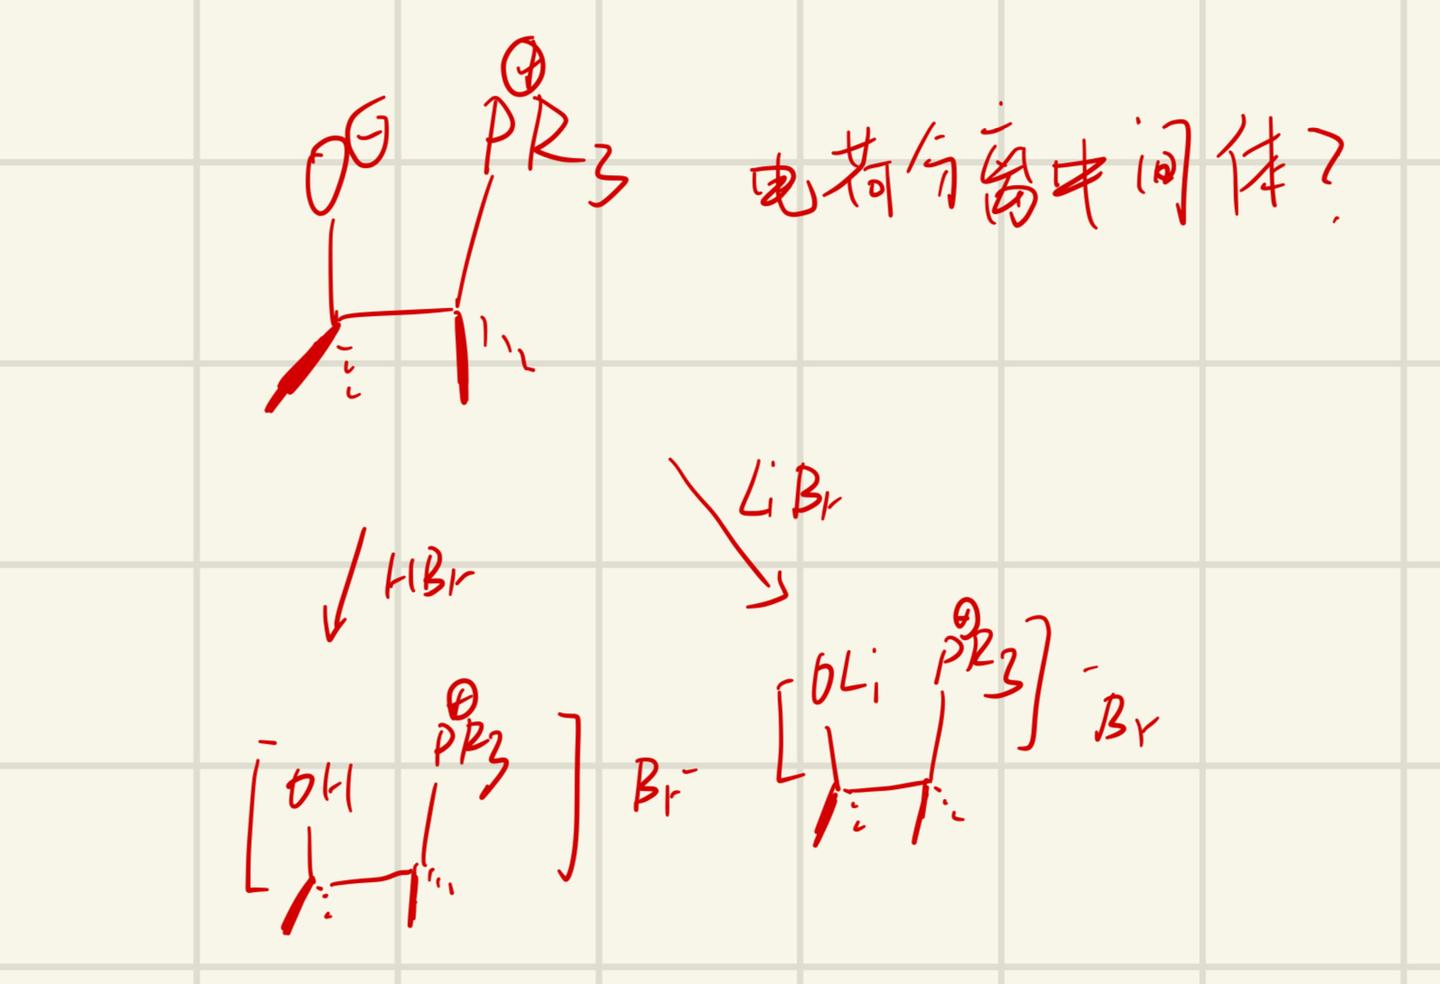 O⊖ PR3⊕ 电荷分离中间体?
HBr LiBr
[OLi PR3⊕]
Br⁻
[OH PR3⊕] Br⁻